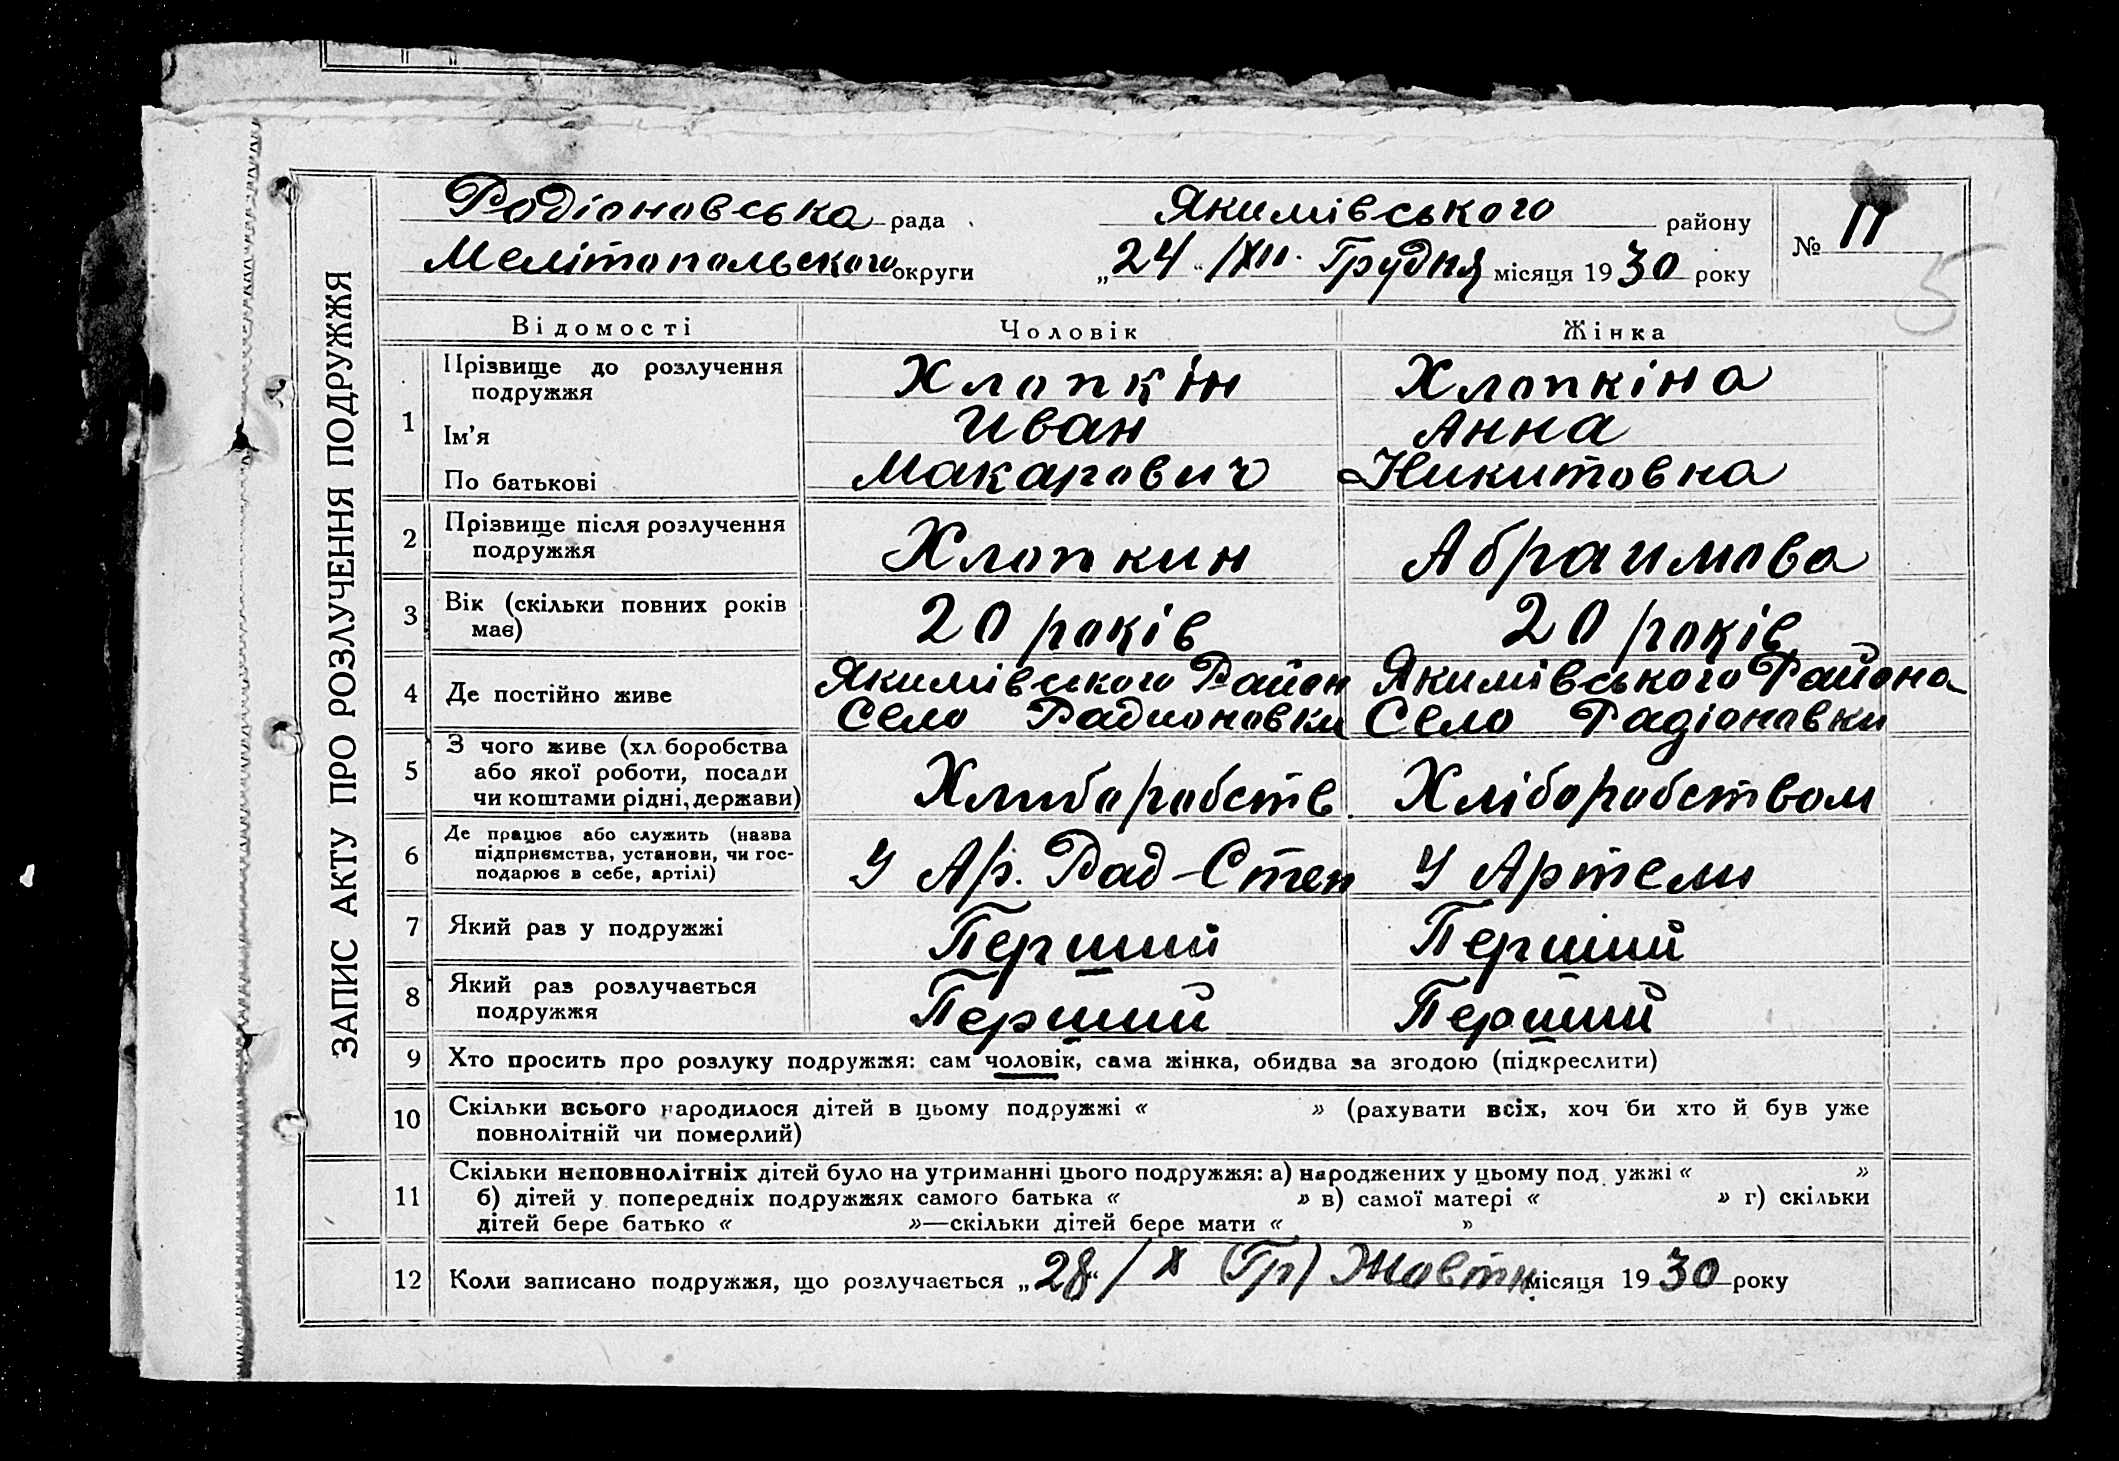 ЗАПИС АКТУ ПРО РОЗЛУЧЕННЯ ПОДРУЖЖЯ
Родіоновська рада Якимівського району
№ 11
Мелітопольского округи „24“ /XII. Грудня місяця 1930 року
5
Відомості Чоловік Жінка
1 Прізвище до розлучення подружжя Хлопкін Хлопкіна
Ім'я Иван Анна
По батькові Макарович Никитовна
2 Прізвище після розлучення подружжя Хлопкин Абраимова
3 Вік (скільки повних років має) 20 років 20 років
4 Де постійно живе Якимівського Район Якимівського Района
Село Радионовки Село Радіоновки
5 З чого живе (хл боробства
або якої роботи, посади
чи коштами рідні, держави) Хлиборобств. Хліборобством
6 Де працює або служить (назва
підприємства, установи, чи гос-
подарює в себе, артілі) У Ар. Рад-Степ У Артели
7 Який раз у подружжі Перший Перший
8 Який раз розлучається
подружжя Перший Перший
9 Хто просить про розлуку подружжя: сам чоловік, сама жінка, обидва за згодою (підкреслити)
10 Скільки всього народилося дітей в цьому подружжі « » (рахувати всіх, хоч би хто й був уже
повнолітній чи померлий)
11 Скільки неповнолітніх дітей було на утриманні цього подружжя: а) народжених у цьому под ужжі « »
б) дітей у попередніх подружжях самого батька « » в) самої матері « » г) скільки
дітей бере батько « »—скільки дітей бере мати « »
12 Коли записано подружжя, що розлучається „28“ / X (Гр) Жовтн. місяця 1930 року